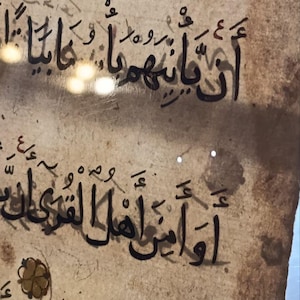 أَن يَّأْتِيَهُم بَأْسُنَا بَيَاتًا
أَوَ أَمِنَ أَهْلُ الْقُرَىٰ أَن